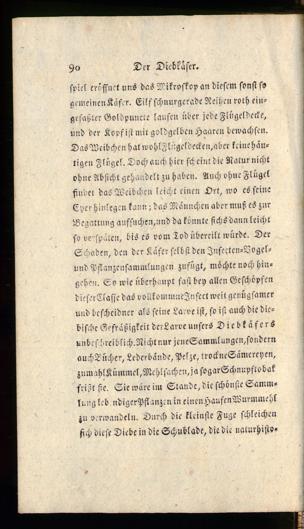 90 Der Diebkäfer.
spiel eröffnet uns das Mikroskop an diesem sonst so
gemeinen Käfer. Eilf schnurgerade Reihen roth ein-
gefaßter Goldpuncte laufen über jede Flügeldecke,
und der Kopf ist mit goldgelben Haaren bewachsen.
Das Weibchen hat wohl Flügeldecken, aber keine häu-
tigen Flügel. Doch auch hier scheint die Natur nicht
ohne Absicht gehandelt zu haben. Auch ohne Flügel
findet das Weibchen leicht einen Ort, wo es seine
Eyer hinlegen kann; das Männchen aber muß es zur
Begattung aufsuchen, und da könnte sichs dann leicht
so verspäten, bis es vom Tod übereilt würde. Der
Schaden, den der Käfer selbst den Insecten-Vogel-
und Pflanzensammlungen zufügt, möchte noch hin-
gehen. So wie überhaupt fast bey allen Geschöpfen
dieser Classe das vollkommne Insect weit genügsamer
und bescheidner als seine Larve ist, so ist auch die die-
bische Gefräßigkeit der Larve unsers Diebkäfers
unbeschreiblich. Nicht nur jene Sammlungen, sondern
auch Bücher, Lederbände, Pelze, trockne Sämereyen,
zumahl Kümmel, Mehlsachen, ja sogar Schnupftobak
frißt sie. Sie wäre im Stande, die schönste Samm-
lung leb ndiger Pflanzen in einen Haufen Wurmmehl
zu verwandeln. Durch die kleinste Fuge schleichen
sich diese Diebe in die Schublade, die die naturhisto-